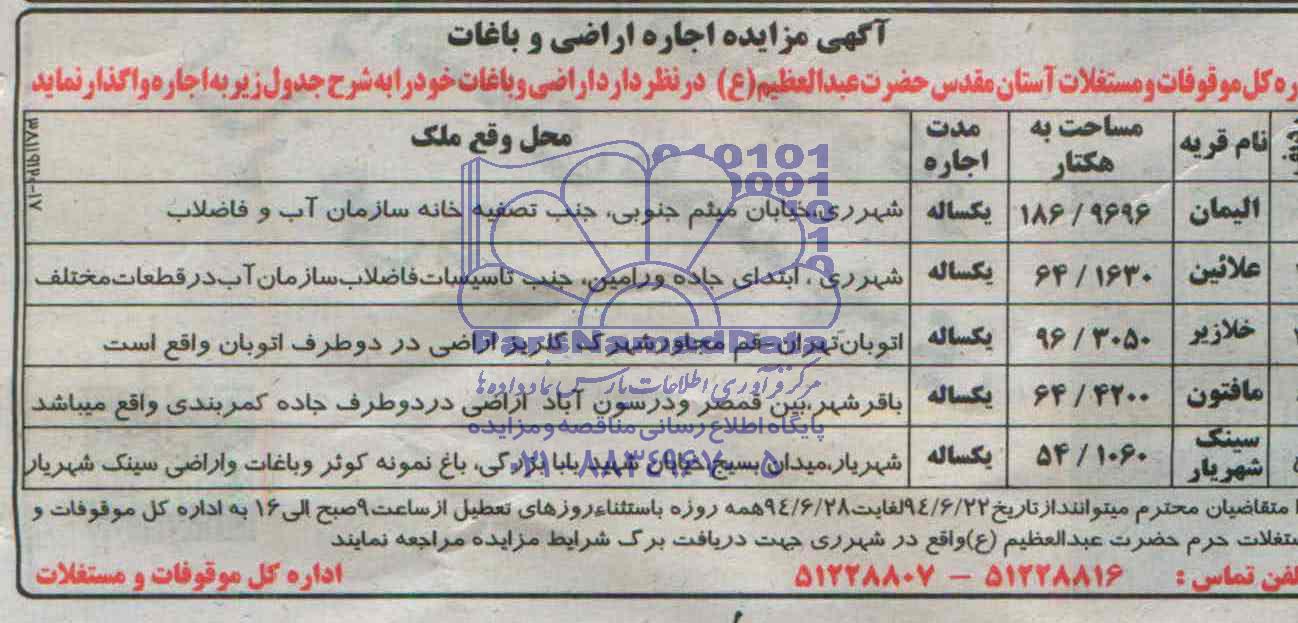 آگهی مزایده اجاره اراضی و باغات
ره کل موقوفات و مستغلات آستان مقدس حضرت عبدالعظیم(ع) در نظر دارد اراضی و باغات خود را به شرح جدول زیر به اجاره واگذار نماید
نام قریه مساحت به هکتار مدت اجاره محل وقع ملک
الیمان ۱۸۶/۹۶۹۶ یکساله شهرری،خیابان میثم جنوبی، جنب تصفیه خانه سازمان آب و فاضلاب
علائین ۶۴/۱۶۳۰ یکساله شهرری، ابتدای جاده ورامین، جنب تاسیسات فاضلاب سازمان آب در قطعات مختلف
خلازیر ۹۶/۳۰۵۰ یکساله اتوبان تهران-قم مجاور شهرک گلریز اراضی در دو طرف اتوبان واقع است
مافتون ۶۴/۴۲۰۰ یکساله باقر شهر،بین قمصر ودرسون آباد اراضی در دوطرف جاده کمربندی واقع میباشد
سینک شهریار ۵۴/۱۰۶۰ یکساله شهریار،میدان بسیج،خیابان شهید بابا بزرگی، باغ نمونه کوثر وباغات واراضی سینک شهریار
متقاضیان محترم میتوانند از تاریخ ۹۴/۶/۲۲ لغایت ۹۴/۶/۲۸ همه روزه باستثناءروزهای تعطیل از ساعت ۹صبح الی ۱۶ به اداره کل موقوفات و
ستغلات حرم حضرت عبدالعظیم (ع)واقع در شهرری جهت دریافت برگ شرایط مزایده مراجعه نمایند
لفن تماس : ۵۱۲۲۸۸۱۶ - ۵۱۲۲۸۸۰۷ اداره کل موقوفات و مستغلات
ParsNamadData
مرکز فرآوری اطلاعات پارس نماد داده ها
پایگاه اطلاع رسانی مناقصه و مزایده
۰۲۱-۸۸۳۴۹۶۷۰-۵